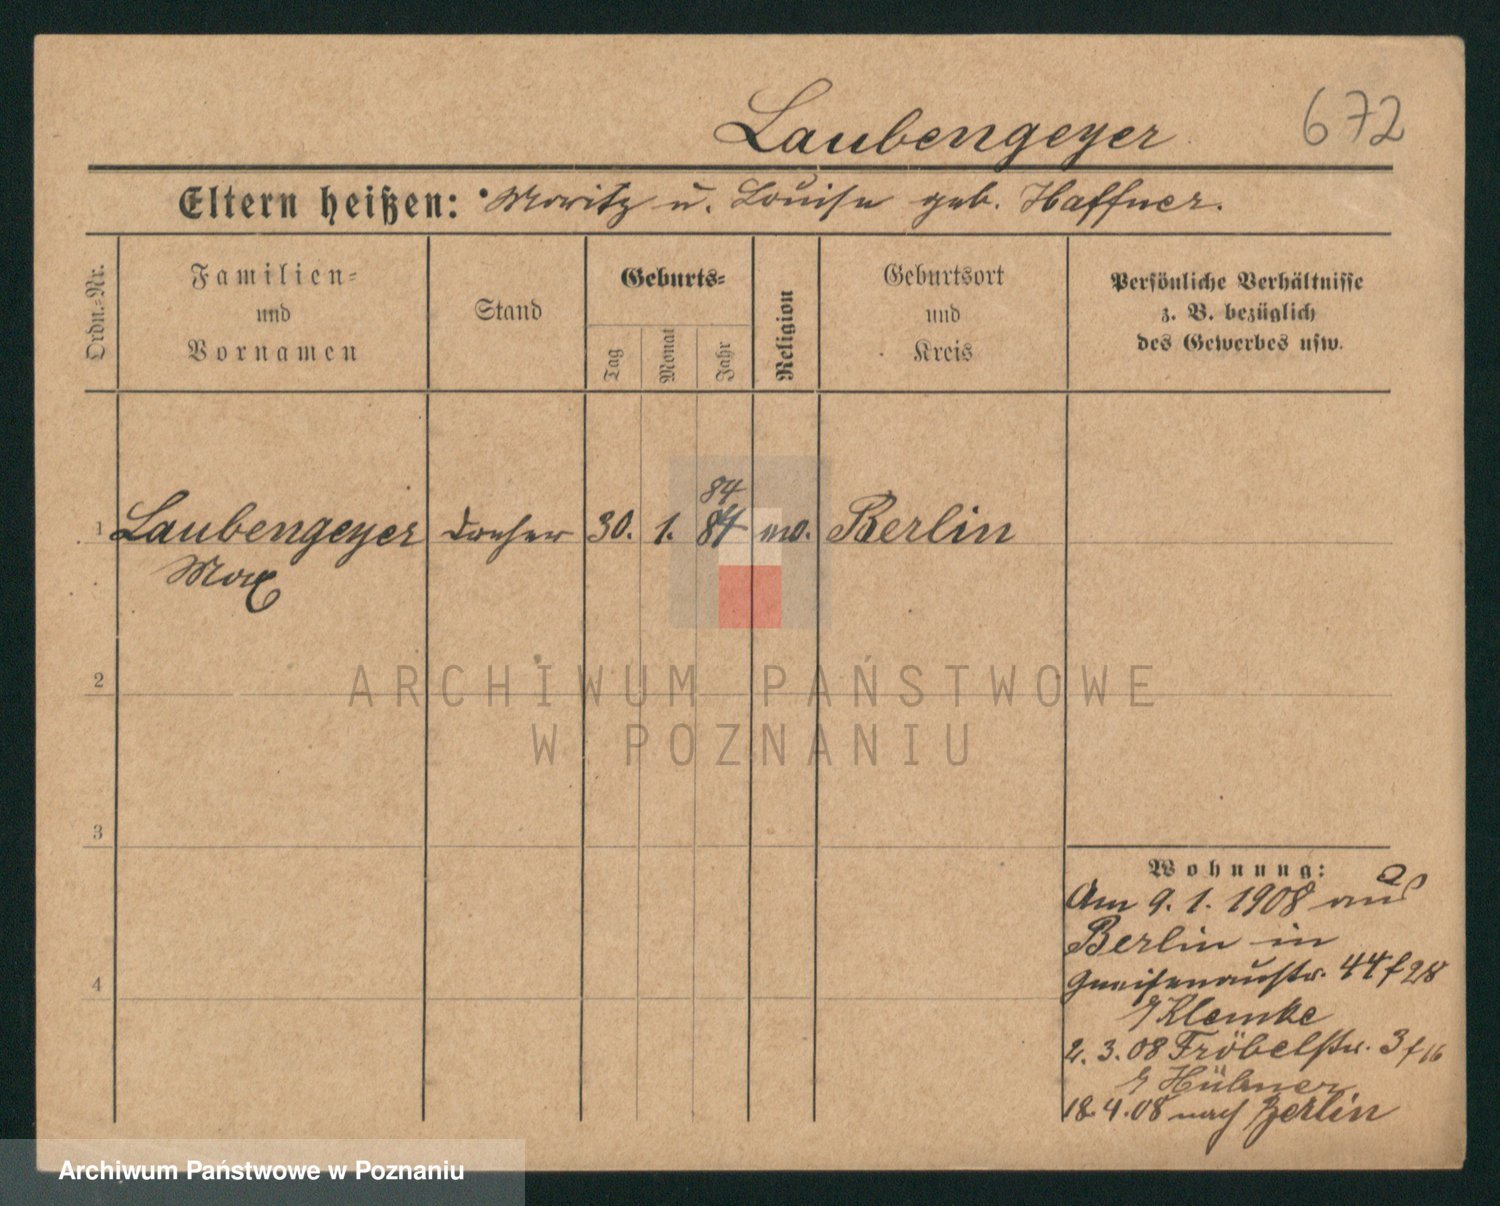 Laubengeyer 672
Eltern heißen: Moritz u. Louise geb. Haffner.
Ordn.-Nr.
Familien-
und
Vornamen
Stand
Geburts-
Tag
Monat
Jahr
Religion
Geburtsort
und
Kreis
Persönliche Verhältnisse
z. B. bezüglich
des Gewerbes usw.
84
1 Laubengeyer Dreher 30. 1. 84 ev. Berlin
Max
2
3
4
Wohnung:
Am 9. 1. 1908 aus
Berlin in
Gneisenaustr. 44 f 28
Klemke
2. 3. 08 Fröbelstr. 3 f 16
Hübner
18.4.08 nach Berlin
ARCHIWUM PAŃSTWOWE
W POZNANIU
Archiwum Państwowe w Poznaniu